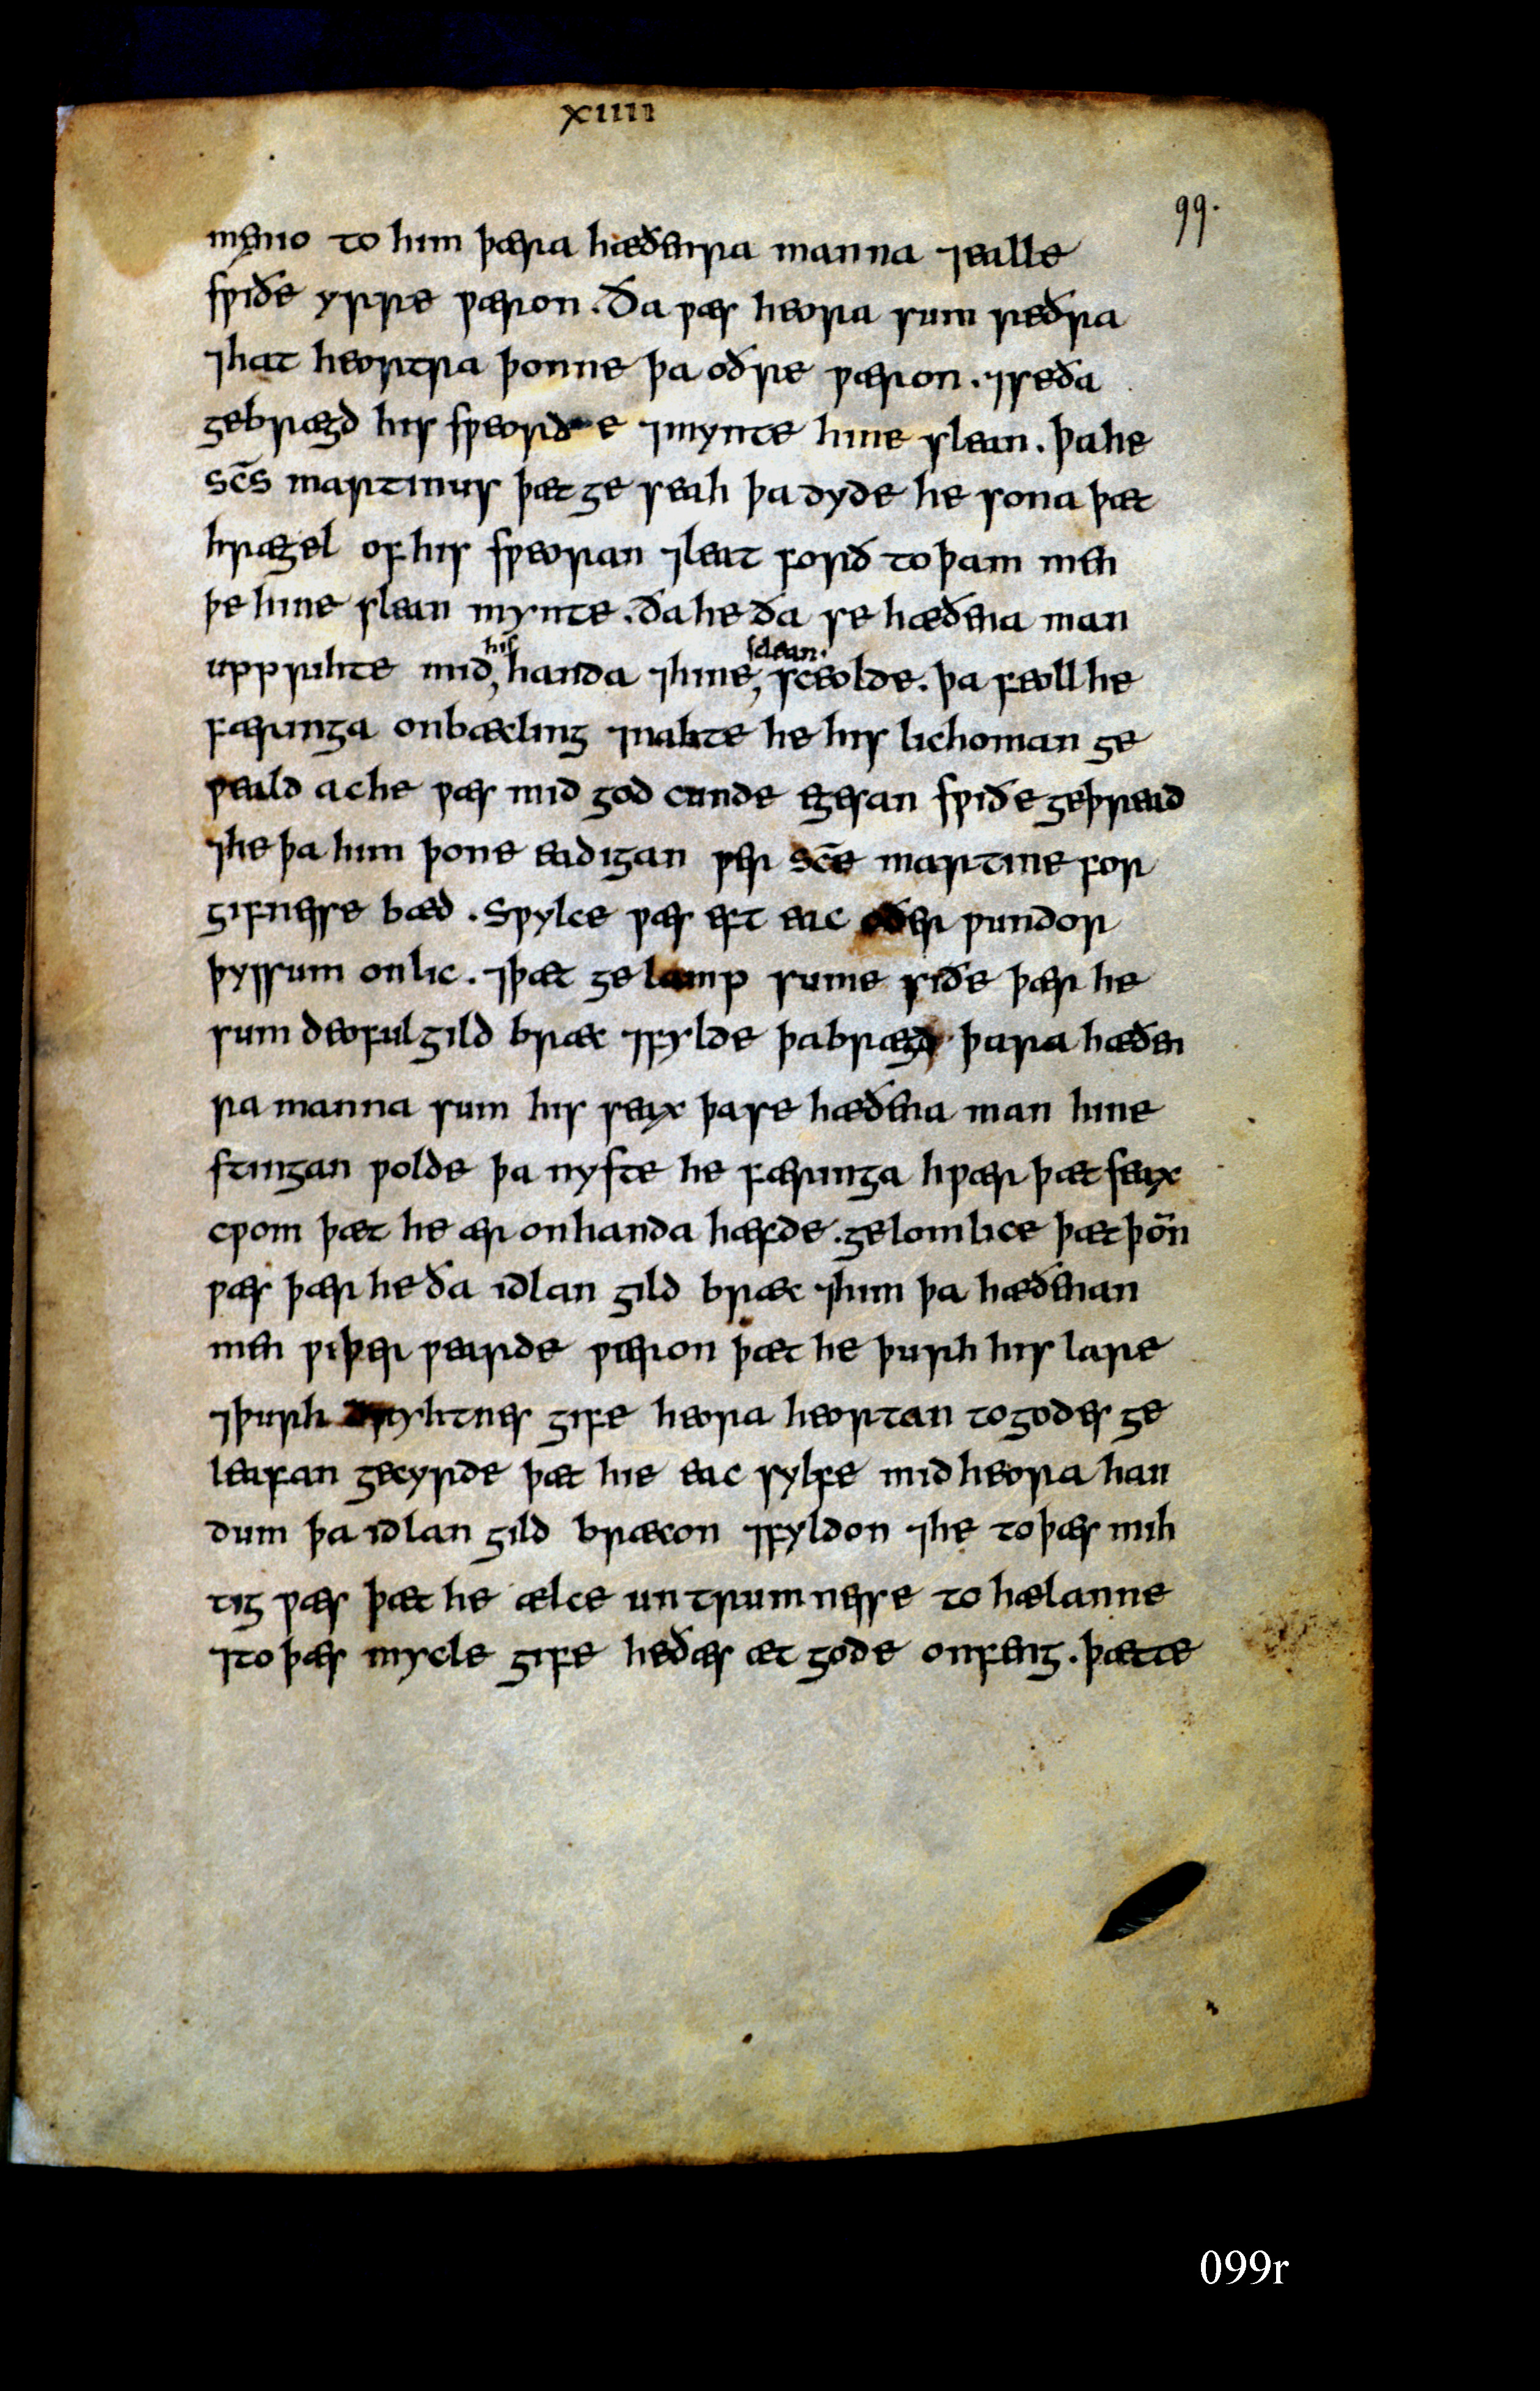 xiiii
99.
menio to him þæra hæðenra manna ⁊ealle
swiðe yrre wæron. Ða wæs heora sum reðra
⁊hat heortra þonne þa oðre wæron. ⁊seða
gebrægd his sweorde ⁊mynte hine slean. þa he
sc̄s martinus þæt ge seah þa dyde he sona þæt
hrægel of his sweoran ⁊leat forð to þam men
þe hine slean mynte. ða he ða se hæðena man
upp rihte mid, his handa ⁊hine, sclean. sceolde. þa feoll he
færinga onbæcling ⁊nahte he his lichoman ge
weald ac he wæs mid god cunde egesan swiðe geþread
⁊he þa him þone eadigan wer sc̄e martine for
gifnesse bæd. Swylce wæs eft eac oðer wundor
þyssum onlic. ⁊þæt ge lamp sume siðe þær he
sum deofulgild bræc ⁊fylde þa brægd þara hæðen
ra manna sum his seax þa se hæðena man hine
stingan wolde þa nyste he færinga hwær þæt seax
cwom þæt he ær on handa hæfde. gelomlice þæt þon̄
wæs þær he ða idlan gild bræc ⁊him þa hæðenan
men wiþer wearde wæron þæt he þurh his lare
⁊þurh dryhtnes gife heora heortan to godes ge
leafan gecyrde þæt hie eac sylfe mid heora han
dum þa idlan gild bræcon ⁊fyldon ⁊he to þæs mih
tig wæs þæt he ælce untrumnesse to hælanne
⁊to þæs mycle gife he ðæs æt gode onfeng. þætte
099r